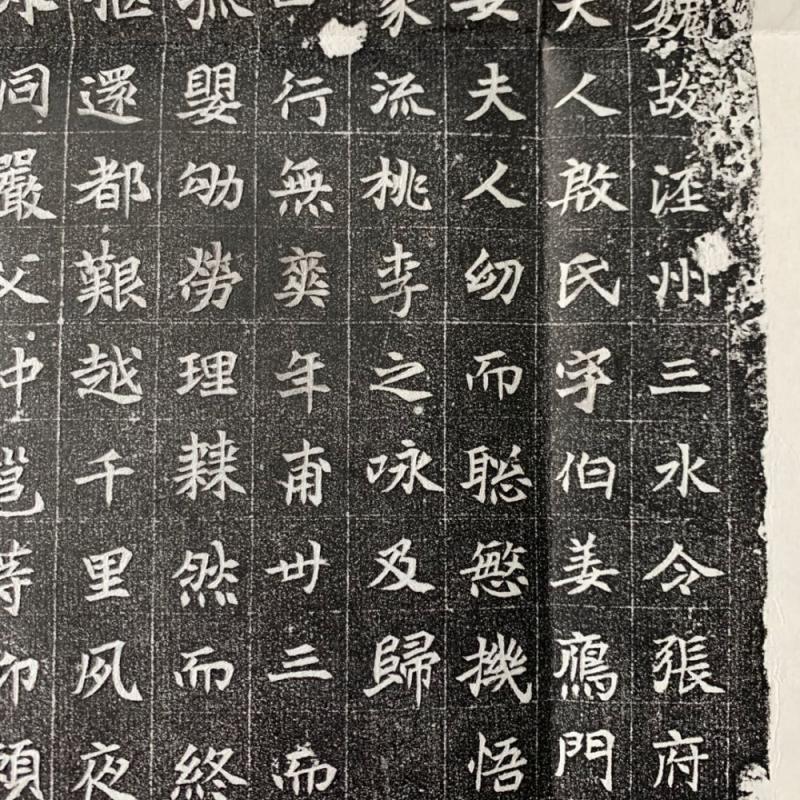 魏故涇州三水令張府
夫人啟氏字伯姜鴈門
女夫人㓜而聡慜機悟
家流桃李之咏及歸
行無爽年甫丗三而
孤嬰㓜勞理棘然而終
還都艱越千里夙夜
同嚴父冲邕等